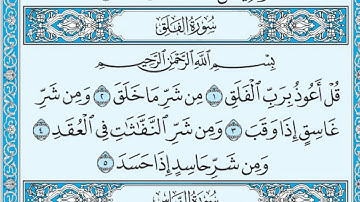 سُورَةُ الفَلَقِ
بِسْمِ اللَّهِ الرَّحْمَٰنِ الرَّحِيمِ
قُلْ أَعُوذُ بِرَبِّ الْفَلَقِ ١ مِن شَرِّ مَا خَلَقَ ٢ وَمِن شَرِّ
غَاسِقٍ إِذَا وَقَبَ ٣ وَمِن شَرِّ النَّفَّٰثَٰتِ فِى الْعُقَدِ ٤
وَمِن شَرِّ حَاسِدٍ إِذَا حَسَدَ ٥
سُورَةُ النَّاسِ